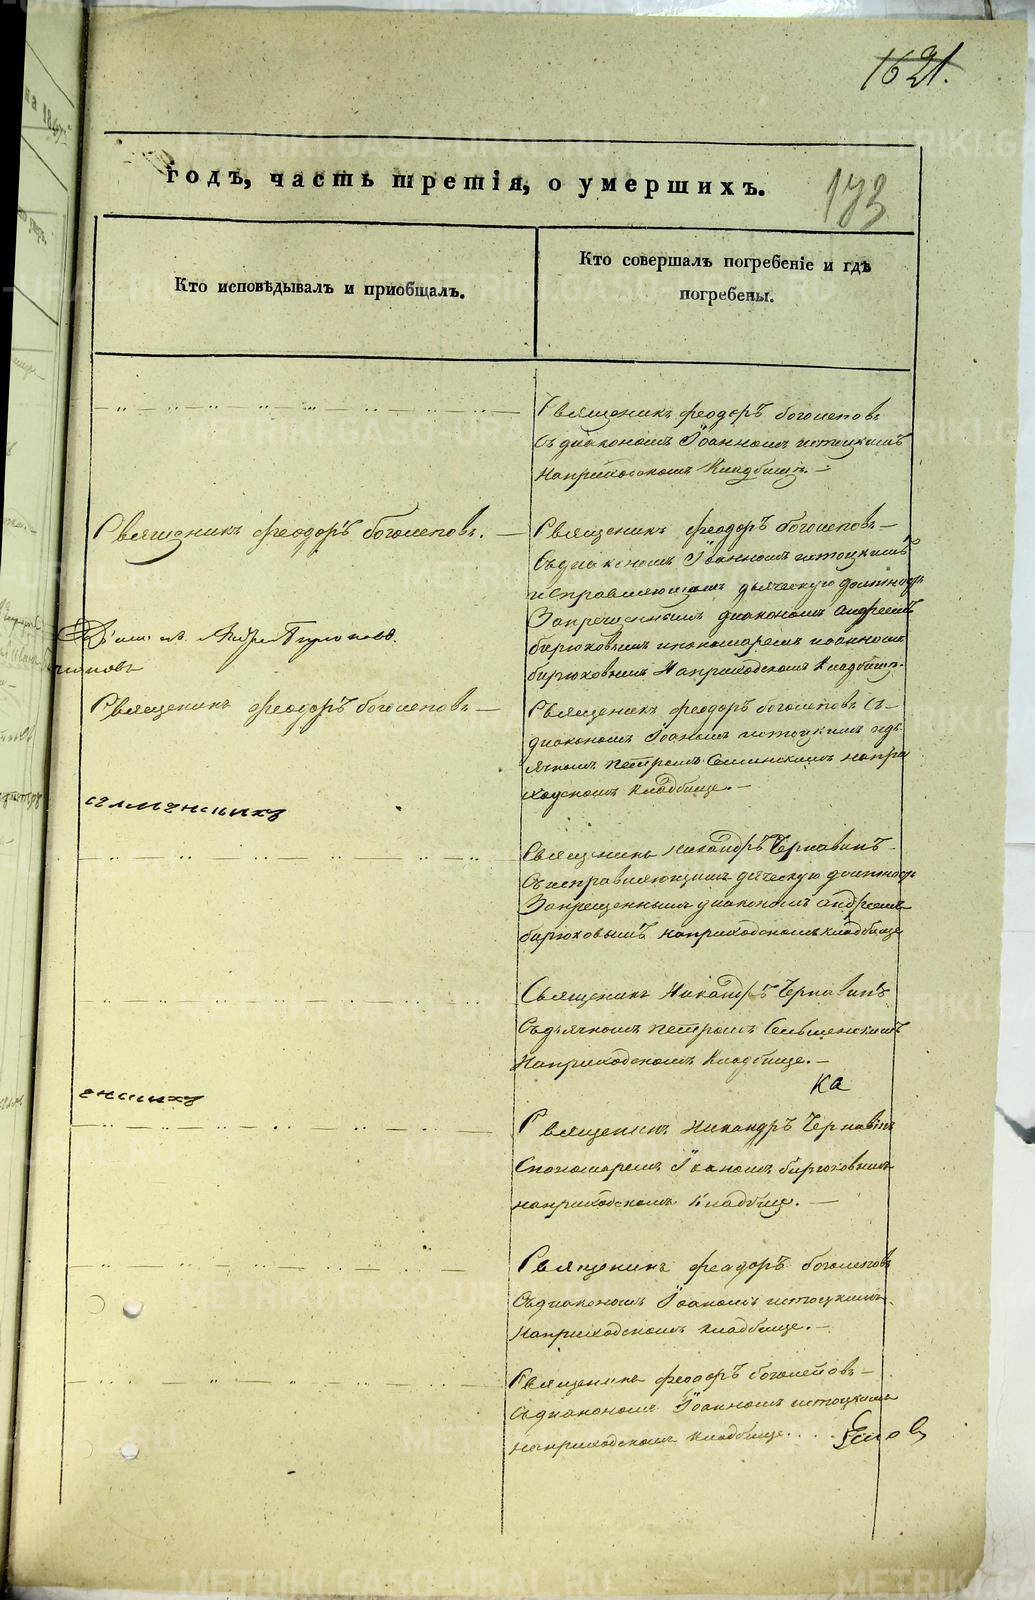 1621.
годъ, часть третія, о умершихъ.
173
Кто исповѣдывалъ и приобщалъ.
Кто совершалъ погребеніе и гдѣ
погребены.
Священикъ феодоръ боголеповъ
Съ диакономъ Іоанномъ истоцкимъ
Наприходскомъ Кладбищѣ. —
Священикъ феодоръ боголеповъ. —
Священикъ феодоръ боголеповъ —
Съдиакономъ Іоанномъ истоцкимъ
исправляющимъ дьяческую должность
Запрещеннымъ диакономъ андреемъ
бирюковымъ ипономаремъ иоанномъ
бирюковымъ Наприходскомъ Кладбищѣ.
Священикъ феодоръ боголеповъ —
Священикъ феодоръ боголеповъ Съ-
диакономъ Іоаномъ истоцкимъ идь
ячкомъ петромъ наприх
ходскомъ кладбище. —
Священикъ никандръ Чернавинъ
Съисправляющимъ дяческую должность
Запрещеннымъ диакономъ андреемъ
бирюковымъ наприходскомъ кладбище
Священикъ Никандръ Чернавинъ
Съдьячкомъ петромъ
Наприходскомъ Кладбище. —
ка
Священикъ Никандръ Чернавинъ
Спономаремъ Іоаномъ бирюковымъ
наприходскомъ Кладбище. —
Священикъ феодоръ боголеповъ
Съдиакономъ Іоаномъ истоцкимъ
Наприходскомъ кладбище. —
Священикъ феодоръ боголеповъ —
Съдиакономъ Іоанномъ истоцкимъ
наприходскомъ Кладбище
METRIKI.GASO-URAL.RU